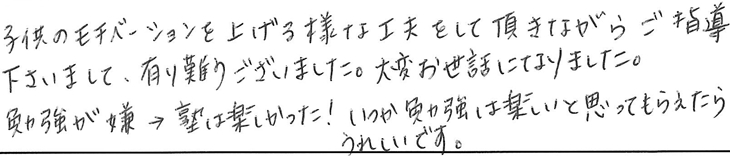 子供のモチベーションを上げる様な工夫をして頂きながらご指導
下さいまして、有り難うございました。大変お世話になりました。
勉強が嫌→塾は楽しかった!いつか勉強は楽しいと思ってもらえたら
うれしいです。